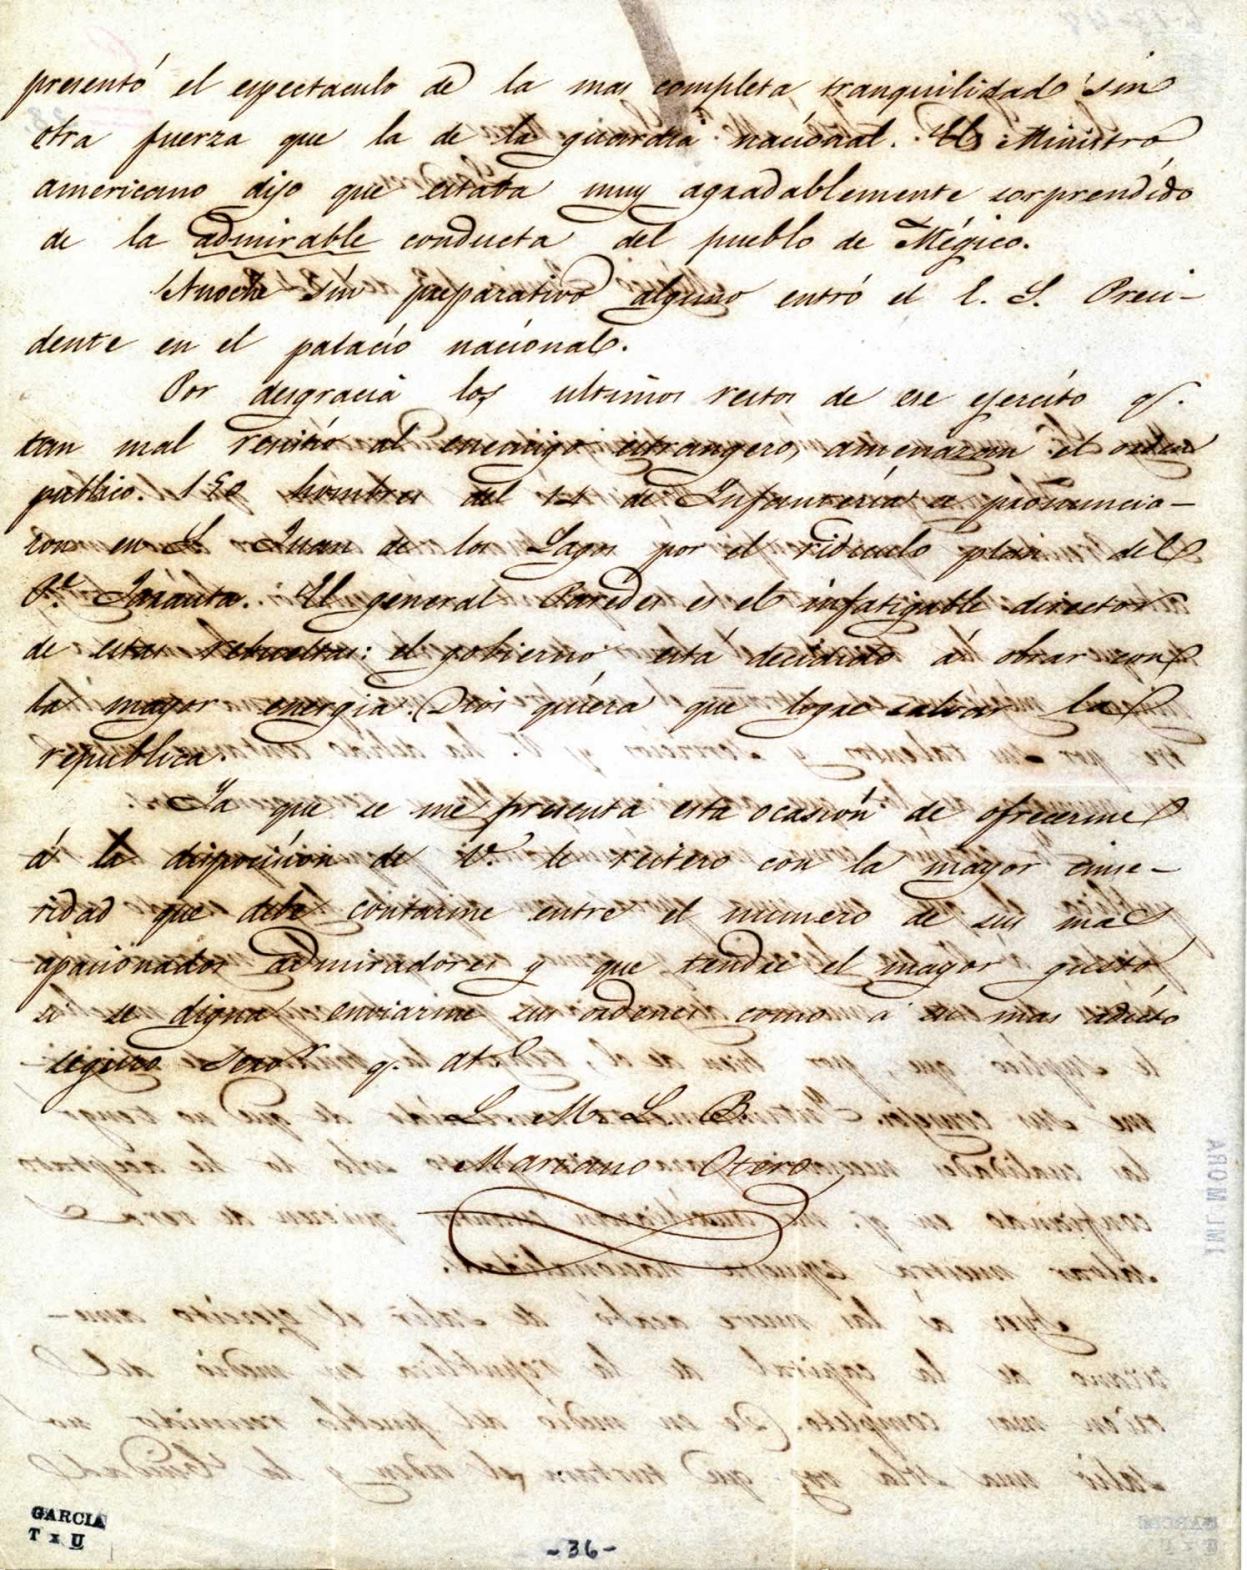 presentó el espectaculo de la mas completa tranquilidad sin
otra fuerza que la de la guardia nacional. El Ministro
americano dijo que estaba muy agradablemente sorprendido
de la admirable conducta del pueblo de Mégico.
Anoche sin preparativo alguno entró el E. S. Presi-
dente en el palacio nacional.
Por desgracia los ultimos restos de ese ejercito q.
tan mal resistió al enemigo estrangero, amenazan el orden
publico. 150 hombres del 11 de Infanteria se pronuncia-
ron en S. Juan de los Lagos por el ridiculo plan del
P.e Jarauta. El general Paredes es el infatigable director
de estas revueltas: el gobierno está decidido á obrar con
la mayor energia. Dios quiera que logre salvar la
republica.
Ya que se me presenta esta ocasión de ofrecerme
á la disposicion de V. le reitero con la mayor since-
ridad que debe contarme entre el numero de sus mas
apasionados admiradores y que tendre el mayor gusto
si se digna enviarme sus ordenes como á su mas adicto
seguro serv.r q. at.
S. M. B.
Mariano Otero
GARCIA
T x U
IML MORA
-36-